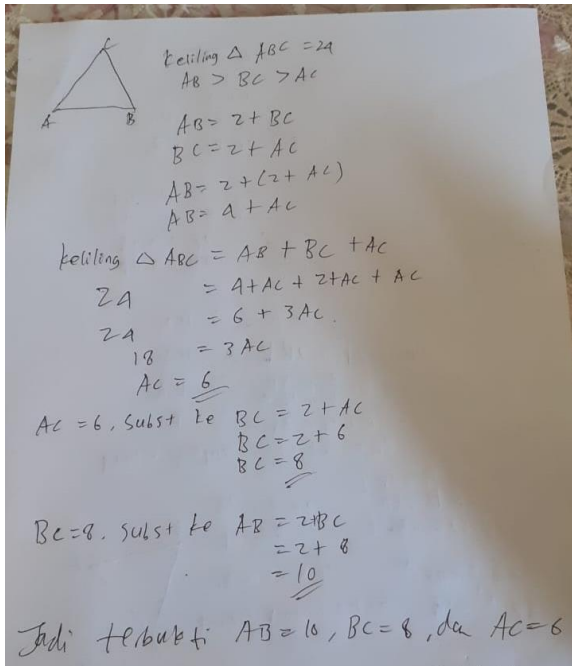 C
A
B
Keliling △ ABC = 24
AB > BC > AC
AB = 2 + BC
BC = 2 + AC
AB = 2 + (2 + AC)
AB = 4 + AC
Keliling △ ABC = AB + BC + AC
24 = 4 + AC + 2 + AC + AC
24 = 6 + 3AC.
18 = 3AC
AC = 6
AC = 6, subst ke BC = 2 + AC
BC = 2 + 6
BC = 8
BC = 8. subst ke AB = 2 + BC
= 2 + 8
= 10
Jadi terbukti AB = 10, BC = 8, dan AC = 6